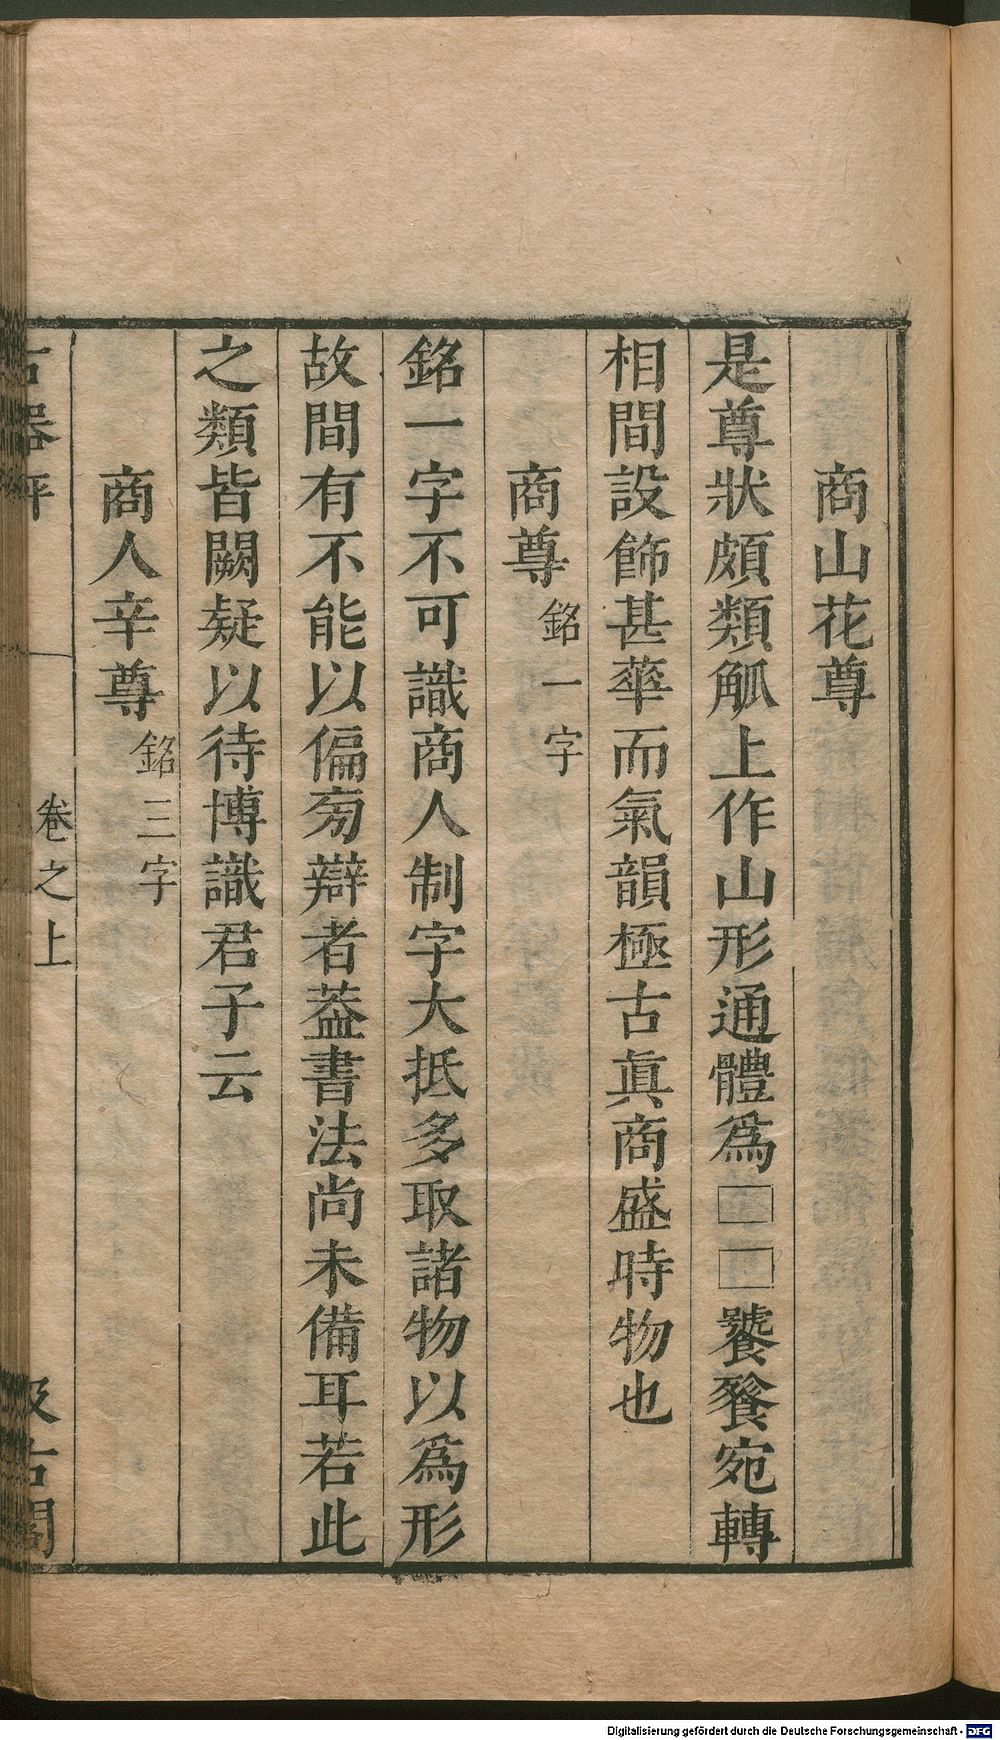 商山花尊
是尊狀頗類觚上作山形通體爲□□饕餮宛轉
相間設飾甚華而氣韻極古眞商盛時物也
商尊銘一字
銘一字不可識商人制字大抵多取諸物以爲形
故間有不能以偏旁辯者葢書法尚未備耳若此
之類皆闕疑以待博識君子云
商人辛尊銘三字
古器評 卷之上 汲古閣
Digitalisierung gefördert durch die Deutsche Forschungsgemeinschaft - DFG